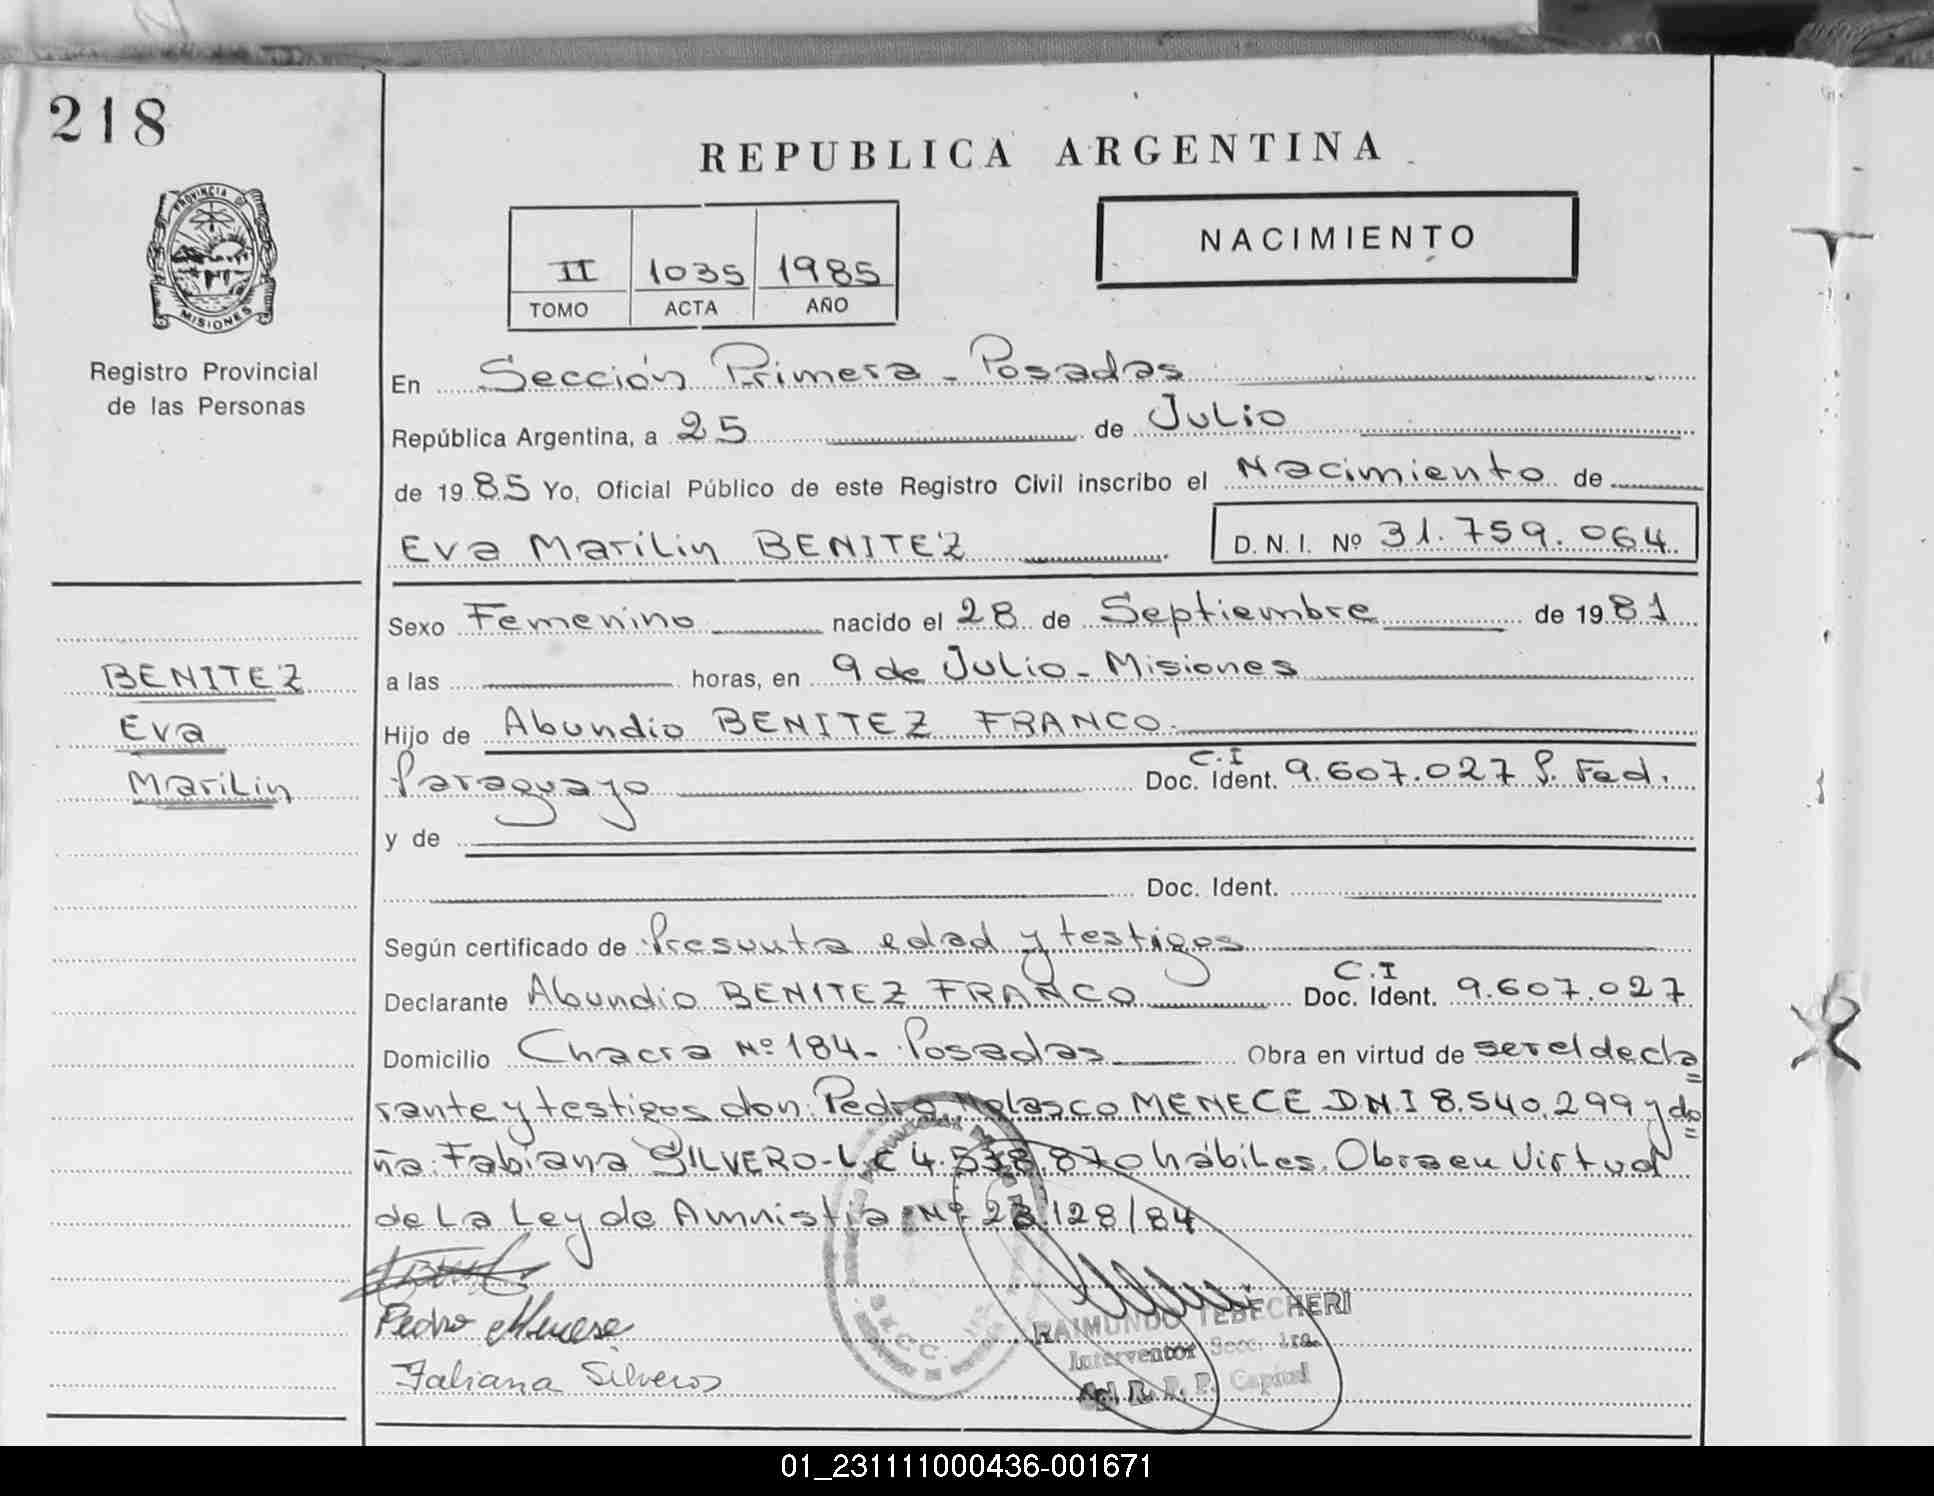 218
REPUBLICA ARGENTINA
PROVINCIA DE
MISIONES
Registro Provincial
de las Personas
II 1035 1985
TOMO ACTA AÑO
NACIMIENTO
En Sección Primera - Posadas
República Argentina, a 25 de Julio
de 1985 Yo, Oficial Público de este Registro Civil inscribo el Nacimiento de
Eva Marilin BENITEZ D. N. I. Nº 31.759.064
Sexo Femenino nacido el 28 de Septiembre de 1981
a las horas, en 9 de Julio - Misiones
Hijo de Abundio BENITEZ FRANCO.
Paraguayo C.I Doc. Ident. 9.607.027 P. Fed.
y de
Doc. Ident.
Según certificado de Presunta edad y testigos
Declarante Abundio BENITEZ FRANCO C.I Doc. Ident. 9.607.027
Domicilio Chacra Nº 184 - Posadas Obra en virtud de ser el decla
rante y testigos don: Pedro Nolasco MENECE D.N.I 8.540.299 y do
ña: Fabiana SILVERO - L.C 4.578.870 hábiles. Obra en Virtud
de La Ley de Amnistia Nº 23.128/84
BENITEZ
Eva
Marilin
Pedro Menese
Fabiana Silvero
RAIMUNDO TEBECHERI
Interventor Secc. 1ra.
del R. P. P. Capital
01_231111000436-001671